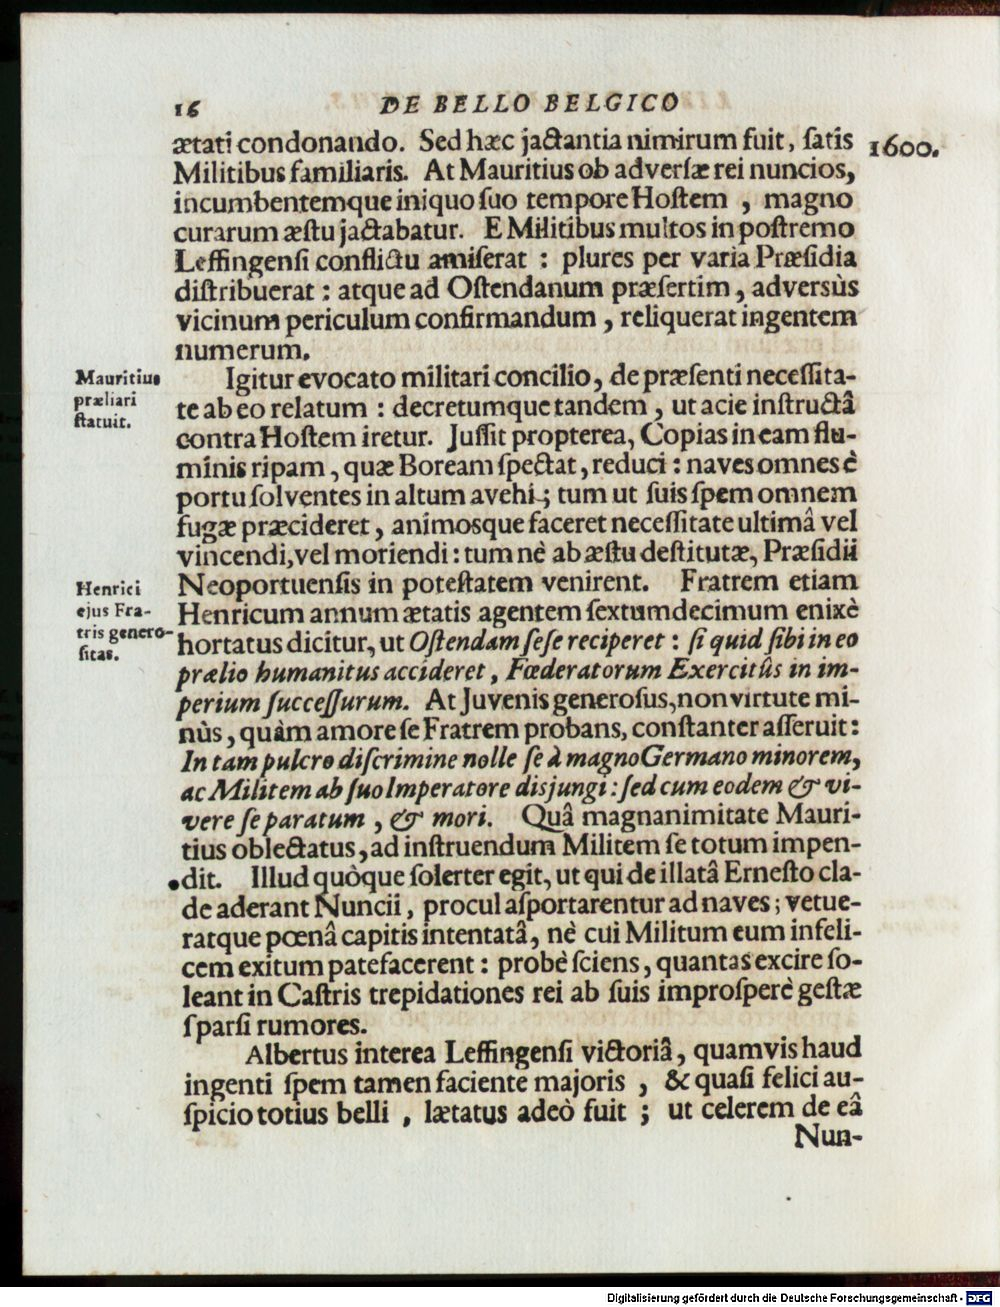 16 DE BELLO BELGICO
ætati condonando. Sed hæc jactantia nimirum fuit, ſatis 1600.
Militibus familiaris. At Mauritius ob adverſæ rei nuncios,
incumbentemque iniquo ſuo tempore Hoſtem , magno
curarum æſtu jactabatur. E Militibus multos in poſtremo
Leffingenſi conflictu amiſerat : plures per varia Præſidia
diſtribuerat : atque ad Oſtendanum præſertim, adversùs
vicinum periculum confirmandum , reliquerat ingentem
numerum.
Mauritius
præliari
ſtatuit.
Igitur evocato militari concilio, de præſenti neceſſita-
te ab eo relatum : decretumque tandem, ut acie inſtructâ
contra Hoſtem iretur. Juſſit propterea, Copias in eam flu-
minis ripam, quæ Boream ſpectat, reduci : naves omnes è
portu ſolventes in altum avehi ; tum ut ſuis ſpem omnem
fugæ præcideret, animosque faceret neceſſitate ultimâ vel
vincendi, vel moriendi : tum nè ab æſtu deſtitutæ, Præſidii
Neoportuenſis in poteſtatem venirent. Fratrem etiam
Henrici
ejus Fra-
tris genero-
ſitas.
Henricum annum ætatis agentem ſextumdecimum enixè
hortatus dicitur, ut Oſtendam ſeſe reciperet : ſi quid ſibi in eo
prælio humanitus accideret, Fœderatorum Exercitûs in im-
perium ſucceſſurum. At Juvenis generoſus, non virtute mi-
nùs, quàm amore ſe Fratrem probans, conſtanter aſſeruit :
In tam pulcro diſcrimine nolle ſe à magno Germano minorem,
ac Militem ab ſuo Imperatore disjungi : ſed cum eodem & vi-
vere ſe paratum , & mori. Quâ magnanimitate Mauri-
tius oblectatus, ad inſtruendum Militem ſe totum impen-
dit. Illud quòque ſolerter egit, ut qui de illatâ Erneſto cla-
de aderant Nuncii, procul aſportarentur ad naves ; vetue-
ratque pœnâ capitis intentatâ, nè cui Militum eum infeli-
cem exitum patefacerent : probè ſciens, quantas excire ſo-
leant in Caſtris trepidationes rei ab ſuis improſperè geſtæ
ſparſi rumores.
Albertus interea Leffingenſi victoriâ, quamvis haud
ingenti ſpem tamen faciente majoris , & quaſi felici au-
ſpicio totius belli , lætatus adeò fuit ; ut celerem de eâ
Nun-
Digitalisierung gefördert durch die Deutsche Forschungsgemeinschaft - DFG